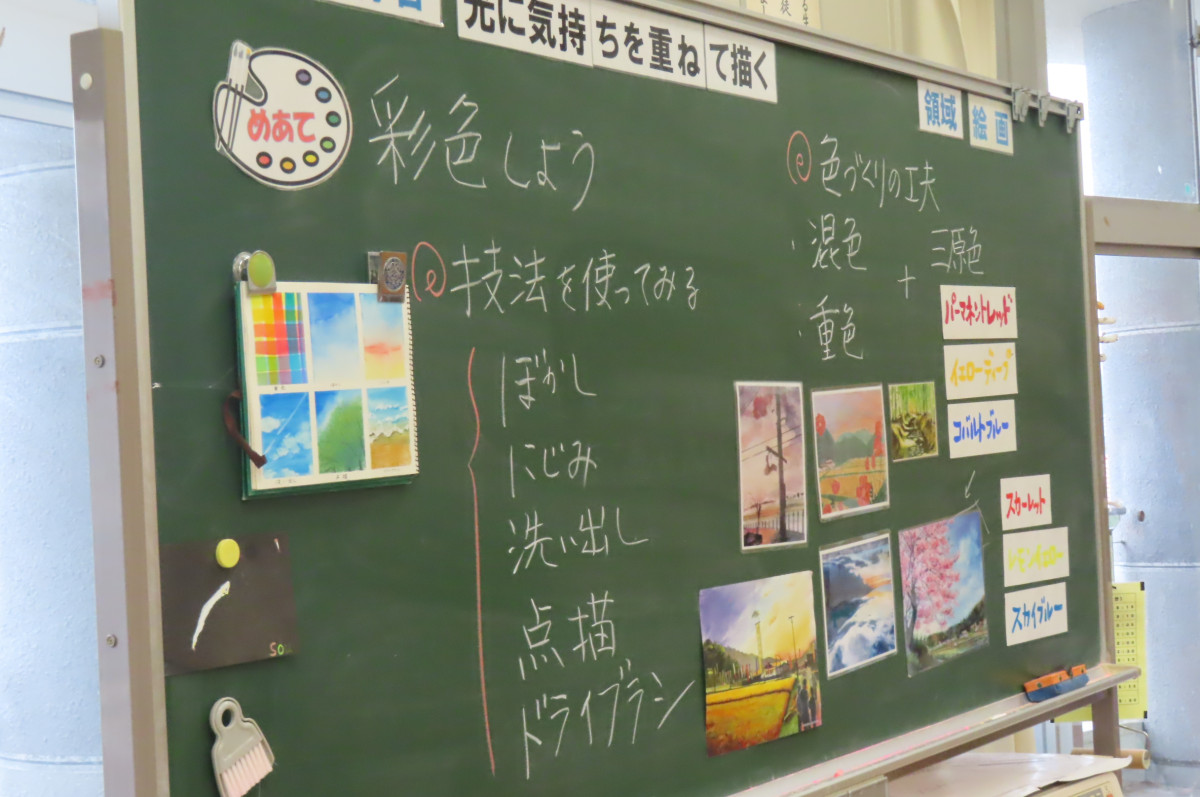 先に気持ちを重ねて描く
領域 絵画
めあて
彩色しよう
技法を使ってみる
ぼかし
にじみ
洗い出し
点描
ドライブラシ
色づくりの工夫
・混色
・重色
+
三原色
パーマネントレッド
イエローディープ
コバルトブルー
スカーレット
レモンイエロー
スカイブルー
50